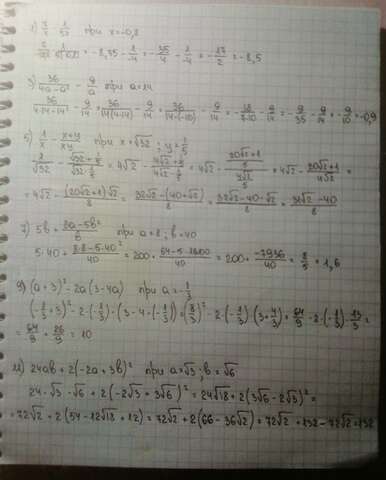 7/x - 1/5x при x=-0,8
= -8,75 - 1/-4 = -35/4 - 1/-4 = -17/2 = -8,5
3) 36/4a-a² - 9/a при a=14
36/4·14-14² - 9/14 = 36/14(4-14) - 9/14 = 36/14·(-10) - 9/14 = -18/7·10 - 9/14 = -9/35 - 9/14 = -9/10 = -0,9
5) 1/x - x+y/xy при x=√32 ; y=1/5
= 4√2 - (20√2+1)√2/8 = 32√2-(40+√2)/8 = 32√2-40-√2/8 = 31√2-40/8
7) 5b + 8a-5b²/b при a=8; b=40
5·40 + 8·8-5·40²/40 = 200 + 64-5·1600/40 = 200 + -7936/40 = 8/5 = 1,6
9) (a+3)²-2a(3-4a) при a=-1/3
(-1/3+3)²-2·(-1/3)·(3-4·(-1/3)) = (8/3)²-2·(-1/3)·(3+4/3) = 64/9-2·(-1/3)·13/3 =
= 64/9 + 26/9 = 10
11) 24ab+2(-2a+3b)² при a=√3; b=√6
24·√3·√6+2(-2√3+3√6)² = 24√18+2(3√6-2√3)² =
=72√2+2(54-12√18+12)=72√2+2(66-36√2)=72√2+132-72√2=132